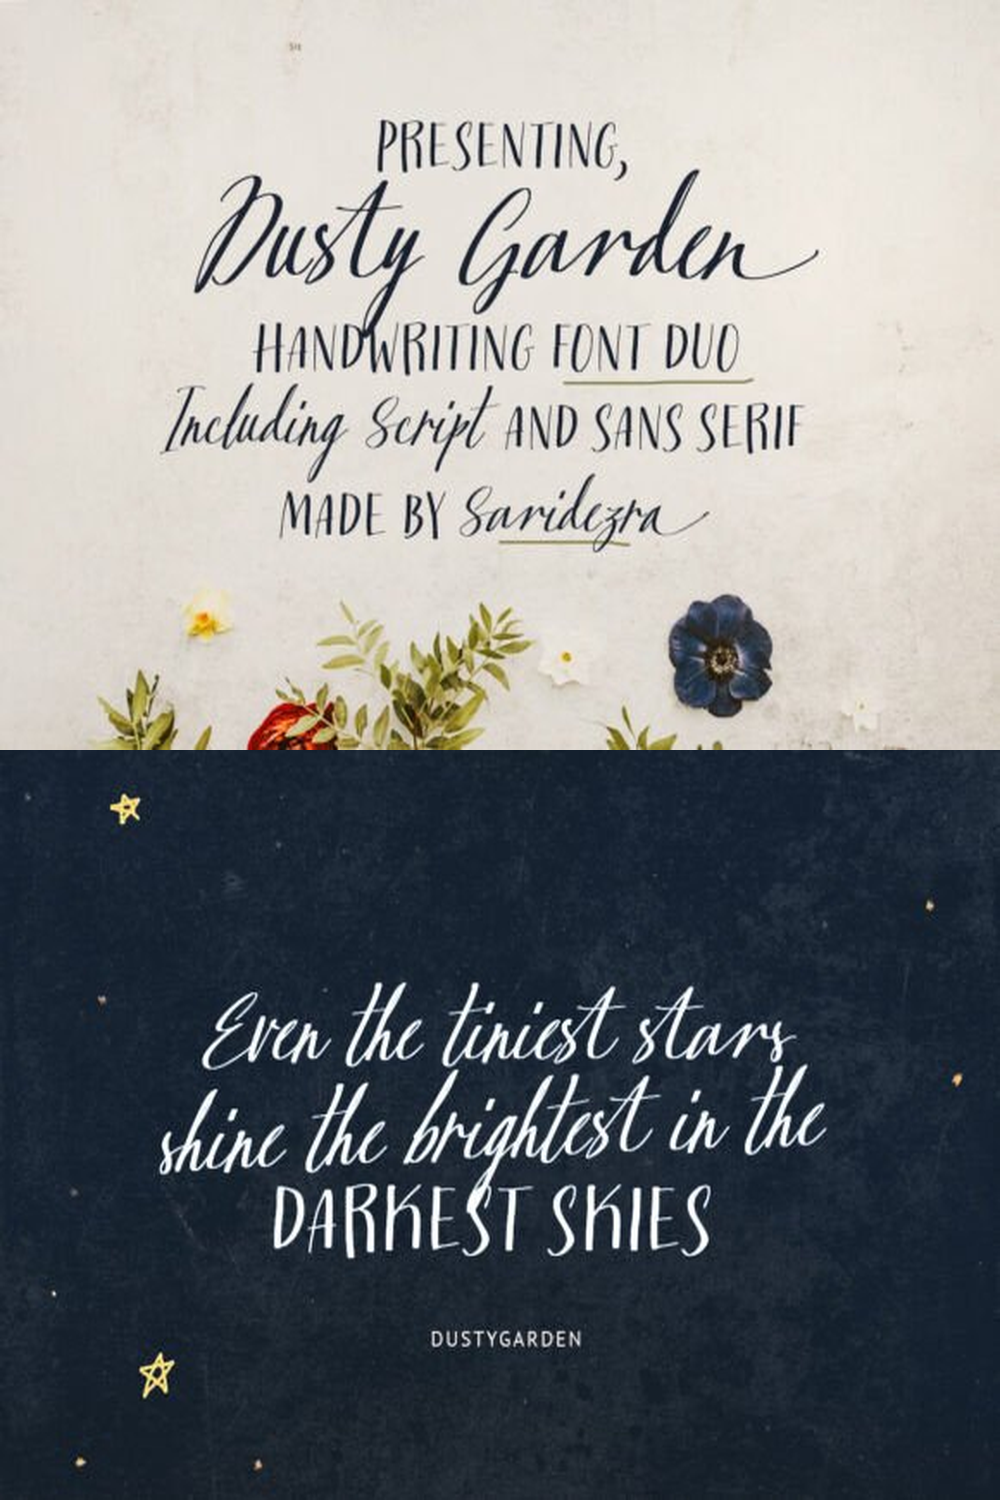 PRESENTING,
Dusty Garden
HANDWRITING FONT DUO
Including Script AND SANS SERIF
MADE BY Saridezra
Even the tiniest stars
shine the brightest in the
DARKEST SKIES
DUSTYGARDEN